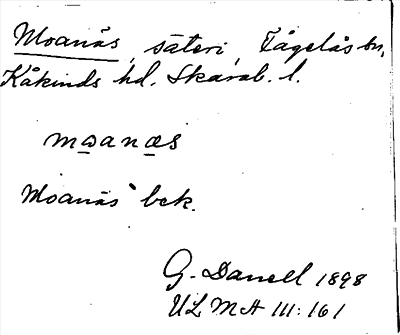 Moanäs, säteri, Fågelås sn,
Kåkinds hd. Skarab. l.
mωanæs
Moanäs bek.
G. Danell 1898
ULMA III: 161